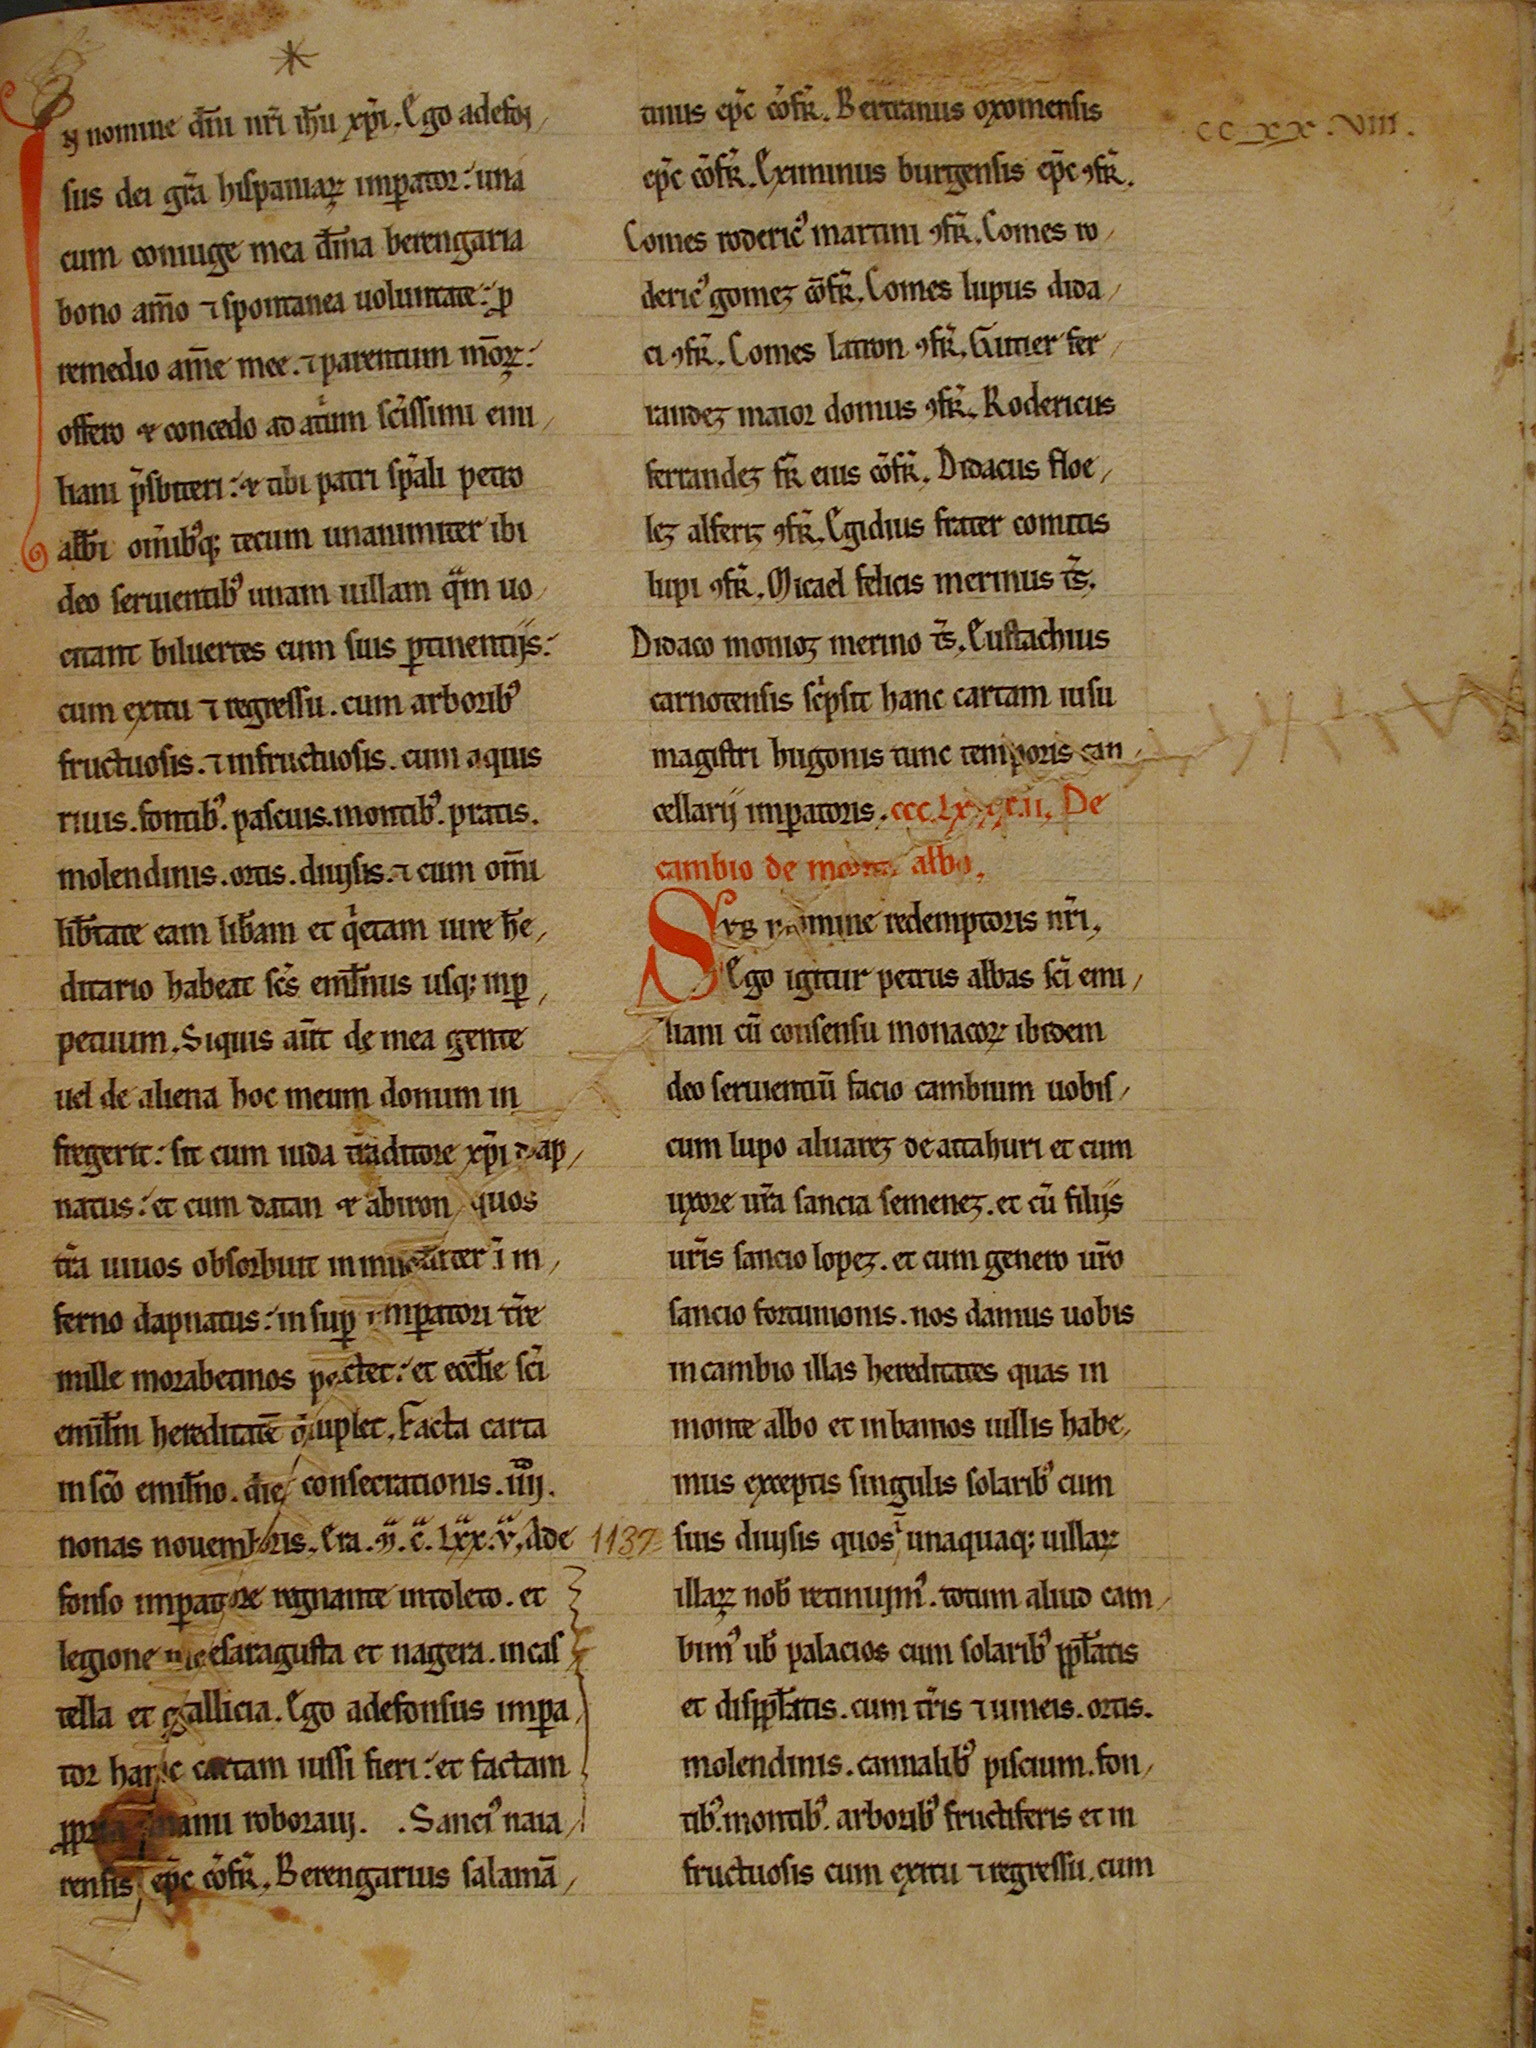 IN nomine dñi nr̃i ih̃u xp̃i. Ego adefon
sus dei gr̃a hispaniaꝝ imꝑator: una
cum coniuge mea dm̃na berengaria
bono aĩmo ⁊ spontanea uoluntate: ꝑ
remedio aĩme mee. ⁊ parentum m̃oꝝ:
offero & concedo ad at̃um sc̃issimi emi
liani p̃sbiteri: & tibi patri sp̃ali petro
abb̃i om̃ibꝰq; tecum unanimiter ibi
deo seruientibꝰ unam uillam q̃m uo
citant biluertes cum suis ꝑtinentijs:
cum exitu ⁊ regressu. cum arboribꝰ
fructuosis. ⁊ infructuosis. cum aquis
riuis. fontibꝰ. pascuis. montibꝰ. pratis.
molendinis. ortis. diuisis. ⁊ cum om̃i
lib̃tate eam lib̃am et q̃etam iure h̃e
ditario habeat sc̃s emil̃nus usq; inꝑ
petuum. Siquis aũt de mea gente
uel de aliena hoc meum donum in
fregerit: sit cum iuda traditore xp̃i dap
natus: et cum datan & abiron quos
tr̃a uiuos obsorbuit
ferno dapnatus: insuꝑ imꝑatori tr̃e
mille morabetinos pectet: et eccl̃ie sc̃i
emil̃ni hereditatẽ q̃iuplet. Facta carta
in sc̃o emil̃no. die consecrationis. iiij.
nonas nouembris. Era. ɱ. c̃. lxx. v. Ade 1137
fonso imꝑatore regnante in toleto. et
legione saragusta et nagera. in cas
tella et gallicia. Ego adefonsus imꝑa
tor hanc cartam iussi fieri: et factam
ꝓpria manu roboraui. . Sanciꝰ naia
rensis ep̃c cõfr̃. Berengarius salamã
tinus ep̃c cõfr̃. Bertranus oxomensis
ep̃c cõfr̃. Eximinus burgensis ep̃c ꝯfr̃.
Comes rodericꝰ martini ꝯfr̃. Comes ro
dericꝰ gomez cõfr̃. Comes lupus dida
ci ꝯfr̃. Comes latron ꝯfr̃. Gutier fer
randez maior domus ꝯfr̃. Rodericus
ferrandez fr̃ eius cõfr̃. Didacus floe
lez alferiz ꝯfr̃. Egidius frater comitis
lupi ꝯfr̃. Micael felicis merinus t̃s.
Didaco monioz merino t̃s. Eustachius
carnotensis sc̃psit hanc cartam iusu
magistri hugonis tunc temporis can
cellarij imꝑatoris. ccc.lx.xx.ii. De
cambio de monte albo.
SUB nomine redemptoris nr̃i.
Ego igitur petrus albas sc̃i emi
liani cũ consensu monacoꝝ ibidem
deo seruientiũ facio cambium uobis
cum lupo aluarez de attahuri et cum
uxore ur̃a sancia semenez. et cũ filijs
ur̃is sancio lopez. et cum genero ur̃o
sancio fortunionis. nos damus uobis
in cambio illas hereditates quas in
monte albo et in bamos uillis habe
mus exceptis singulis solaribꝰ cum
suis diuisis quos ĩ unaquaq; uillaꝝ
illaꝝ nob̃ retinuimꝰ. totum aliud cam
bimꝰ ub̃ palacios cum solaribꝰ ppl̃atis
et disppl̃atis. cum tr̃is ⁊ uineis. ortis.
molendinis. cannalibꝰ piscium. fon
tibꝰ. montibꝰ. arboribꝰ fructiferis et in
fructuosis cum exitu ⁊ regressu. cum
cc.xx.viii.